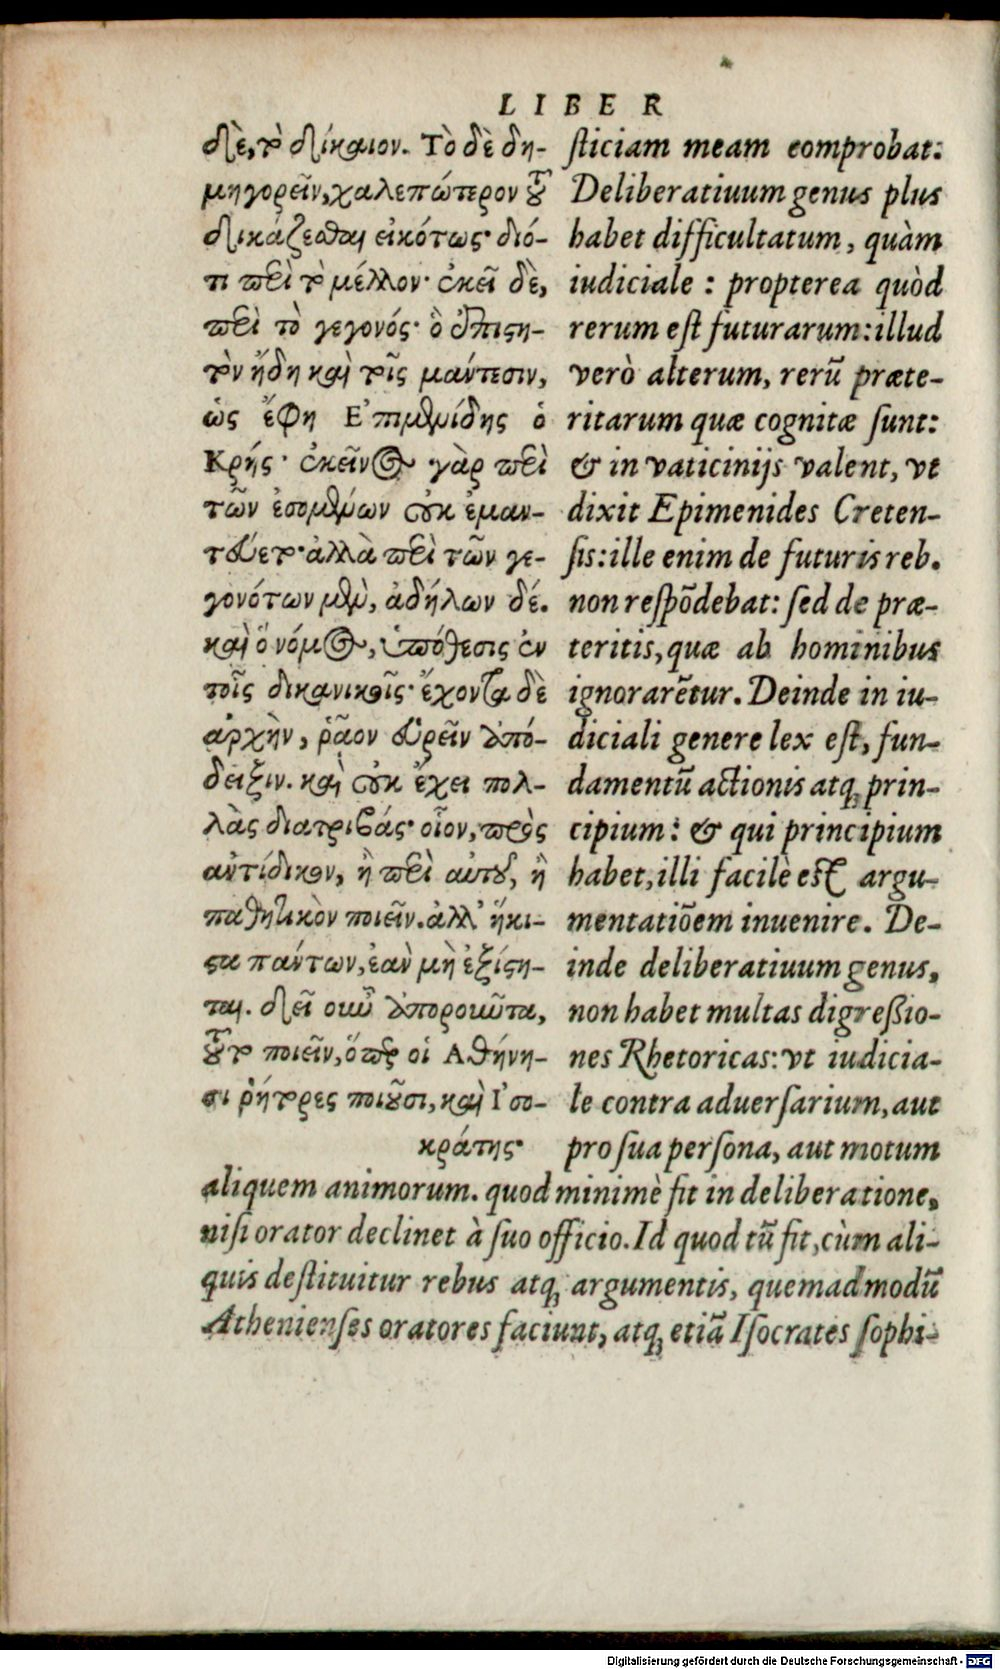 LIBER
δὲ, τὸ δίκαιον. Τὸ δὲ δη-
μηγορεῖν, χαλεπώτερον τοῦ
δικάζεσθαι εἰκότως· διό-
τι περὶ τὸ μέλλον· ἐκεῖ δὲ,
περὶ τὸ γεγονός· ὃ ἐπιστη-
τὸν ἤδη καὶ τοῖς μάντεσιν,
ὡς ἔφη Ἐπιμενίδης ὁ
Κρής· ἐκεῖνος γὰρ περὶ
τῶν ἐσομένων οὐκ ἐμαν-
τεύετο· ἀλλὰ περὶ τῶν γε-
γονότων μὲν, ἀδήλων δέ.
καὶ ὁ νόμος, ὑπόθεσις ἐν
τοῖς δικανικοῖς· ἔχοντα δὲ
ἀρχὴν, ῥᾷον εὑρεῖν ἀπό-
δειξιν. καὶ οὐκ ἔχει πολ-
λὰς διατριβάς· οἷον, πρὸς
ἀντίδικον, ἢ περὶ αὐτοῦ, ἢ
παθητικὸν ποιεῖν. ἀλλ' ἥκι-
στα πάντων, ἐὰν μὴ ἐξίστη-
ται. δεῖ οὖν ἀποροῦντα,
τοῦτο ποιεῖν, ὅπερ οἱ Ἀθήνη-
σι ῥήτορες ποιοῦσι, καὶ Ἰσο-
κράτης·
sticiam meam comprobat:
Deliberatiuum genus plus
habet difficultatum, quàm
iudiciale : propterea quòd
rerum est futurarum: illud
verò alterum, rerũ præte-
ritarum quæ cognitæ sunt:
& in vaticinijs valent, vt
dixit Epimenides Creten-
sis: ille enim de futuris reb.
non respõdebat: sed de præ-
teritis, quæ ab hominibus
ignorarẽtur. Deinde in iu-
diciali genere lex est, fun-
damentũ actionis atq; prin-
cipium: & qui principium
habet, illi facilè est argu-
mentatiõem inuenire. De-
inde deliberatiuum genus,
non habet multas digressio-
nes Rhetoricas: vt iudicia-
le contra aduersarium, aut
pro sua persona, aut motum
aliquem animorum. quod minimè fit in deliberatione,
nisi orator declinet à suo officio. Id quod tũ fit, cùm ali-
quis destituitur rebus atq; argumentis, quemadmodũ
Athenienses oratores faciunt, atq; etiã Isocrates sophi-
Digitalisierung gefördert durch die Deutsche Forschungsgemeinschaft - DFG